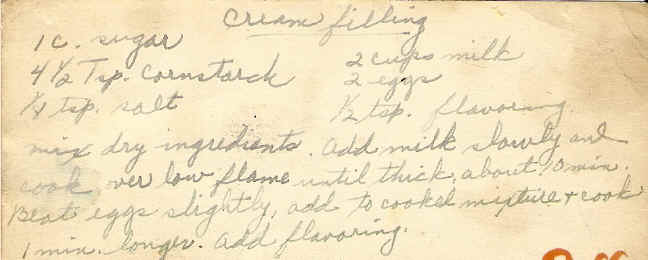 Cream filling
1 c. sugar
4 1/2 Tsp. Cornstarch
1/4 tsp. salt
2 cups milk
2 eggs
1/2 tsp. flavoring
mix dry ingredients. Add milk slowly and
cook over low flame until thick, about 10 min.
Beat eggs slightly, add to cooked mixture + cook
1 min. longer. Add flavoring.